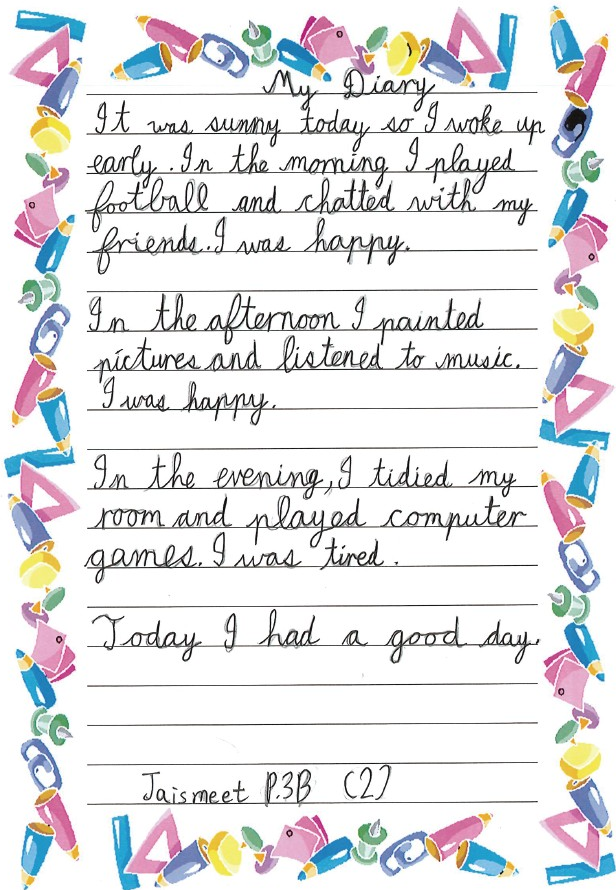 My Diary
It was sunny today so I woke up
early. In the morning I played
football and chatted with my
friends. I was happy.
In the afternoon I painted
pictures and listened to music.
I was happy.
In the evening, I tidied my
room and played computer
games. I was tired.
Today I had a good day.
Jaismeet P.3B (2)